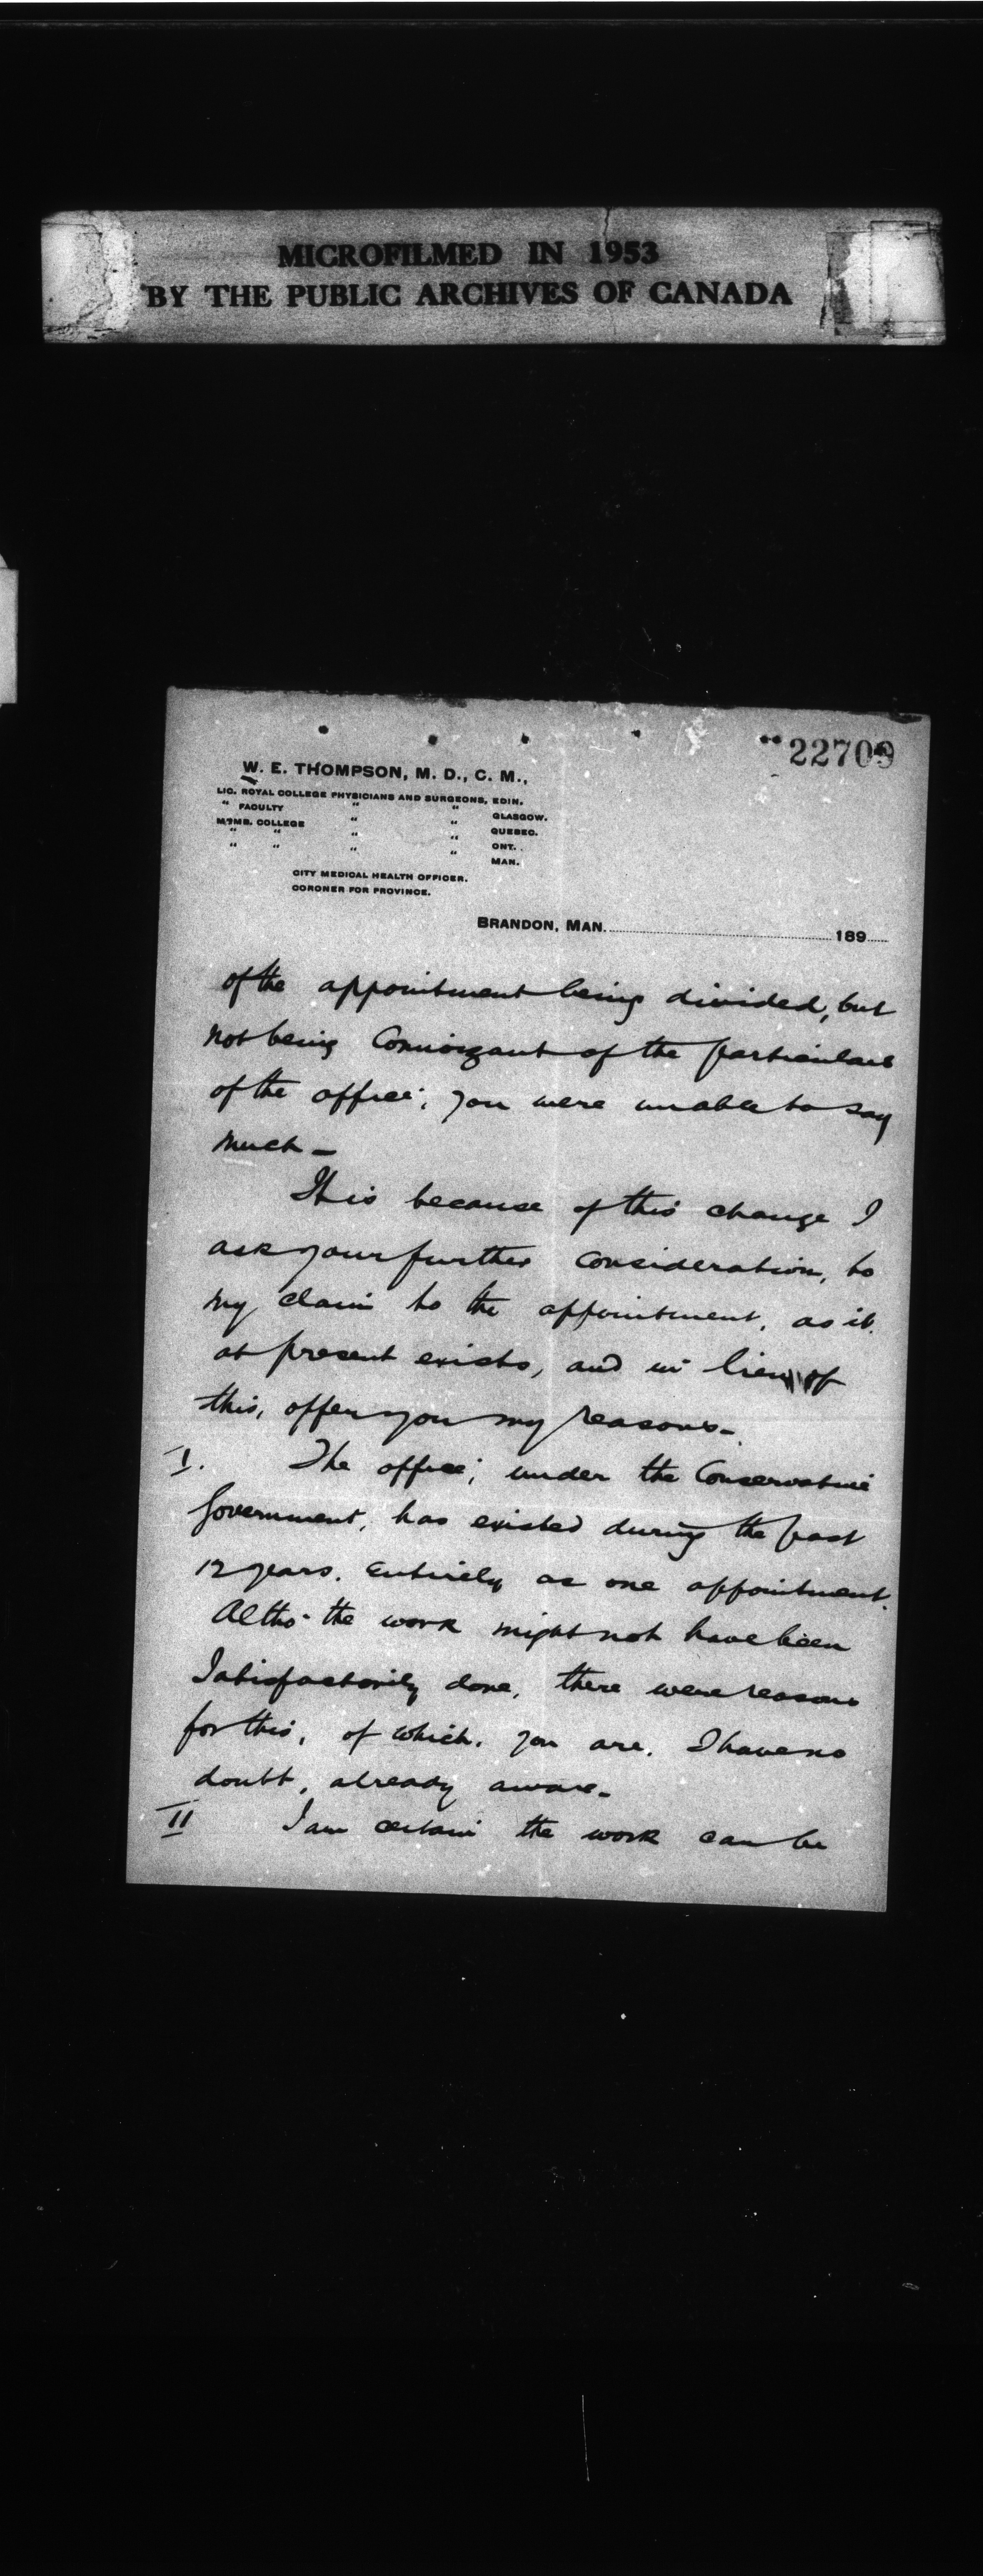 MICROFILMED IN 1953
BY THE PUBLIC ARCHIVES OF CANADA
22709
W. E. THOMPSON, M. D., C. M.,
LIC. ROYAL COLLEGE PHYSICIANS AND SURGEONS, EDIN.
" FACULTY " " GLASGOW.
MEMB. COLLEGE " " QUEBEC.
" " " " ONT.
" " " " MAN.
CITY MEDICAL HEALTH OFFICER.
CORONER FOR PROVINCE.
BRANDON, MAN. 189
of the appointment being divided, but
not being of the particulars
of the office, you were unable to say
much –
It is because of this change I
ask your further consideration, to
my claim to the appointment, as it
at present exists, and in lieu of
this, offer you my reasons –
I. The office, under the Conservative
Government, has existed during the past
12 years. Entirely as one appointment.
Altho' the work might not have been
Satisfactorily done, there were reasons
for this, of which, you are, I have no
doubt, already aware –
II I am certain the work can be